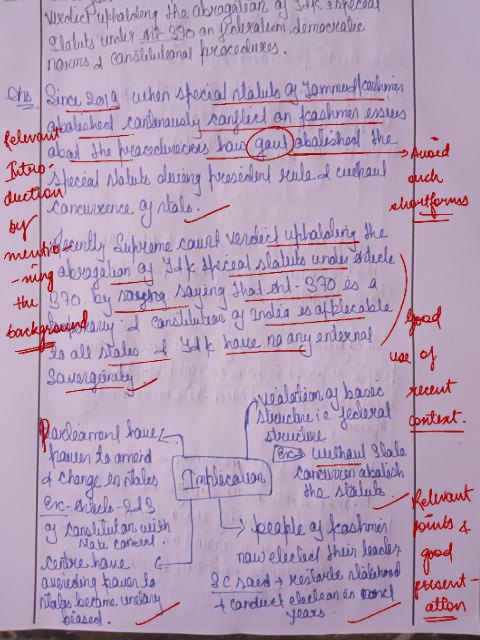 Verdict upholding the abrogation of J&K special
Status under art 370 on federalism, democratic
norms & constitutional procedures.
Ans.
Since 2019 when special status of Jammu & Kashmir
abolished continously conflict on Kashmir issues
about the procedure as how govt abolished the
special status during president rule & without
concurrence of state.
Recently Supreme court verdict upholding the
abrogation of J&K special status under article
370. by saying saying that art-370 is a
temporary & constitution of India is applicable
to all states. & J&K have no any external
Sovereignity
Relevant
Intro-
duction
by
mentio
-ning
the
background
Avoid
such
shortforms
Good
use of
recent
context.
Implication
Parliament have
power to amend
& change in states
Ex:- article-2&3
of constitution with
state consent.
centre have
overriding power to
states become unitary
biased.
violation of basic
structure i.e federal
structure
Ex→ without State
concurren abolish
the status.
people of Kashmir
now elected their leader
SC said → restore statehood
+ conduct election in
years.
Relevant
points &
good
present-
ation